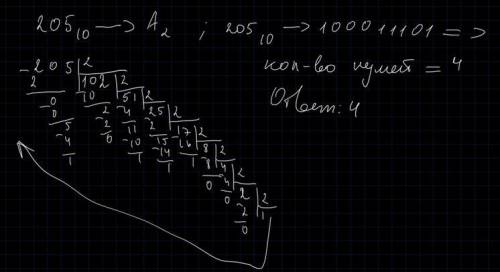 205₁₀ → A₂ ; 205₁₀ → 100011101 =>
кол-во нулей = 4
Ответ: 4
-205|2
2 102|2
-0 10 51|2
0 -2 4 25|2
5 2 11 2 17|2
-4 0 -10 15 -16 8|2
1 1 -14 1 -8 4|2
1 0 -4 2|2
0 -2 1
0